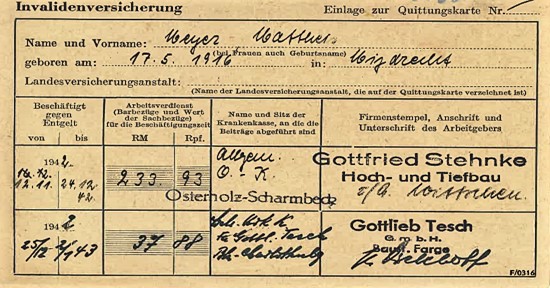 Invalidenversicherung
Einlage zur Quittungskarte Nr.
Name und Vorname: Meyer
(bei Frauen auch Geburtsname)
geboren am: 17. 5. 1916 in: Mijdrecht
Landesversicherungsanstalt:
(Name der Landesversicherungsanstalt, die auf der Quittungskarte verzeichnet ist)
Beschäftigt
gegen
Entgelt
von bis
Arbeitsverdienst
(Barbezüge und Wert
der Sachbezüge)
für die Beschäftigungszeit
RM Rpf.
Name und Sitz der
Krankenkasse, an die die
Beiträge abgeführt sind
Firmenstempel, Anschrift und
Unterschrift des Arbeitgebers
194 2.
12. 11. 24. 12.
42.
233. 93
Allgem.
O. K.
Osterholz-Scharmbeck
Gottfried Stehnke
Hoch- und Tiefbau
194
25/12 2/1 43
37 88
Gottl. Tesch
Gottlieb Tesch
G. m. b. H.
Baust. Farge
F/0316